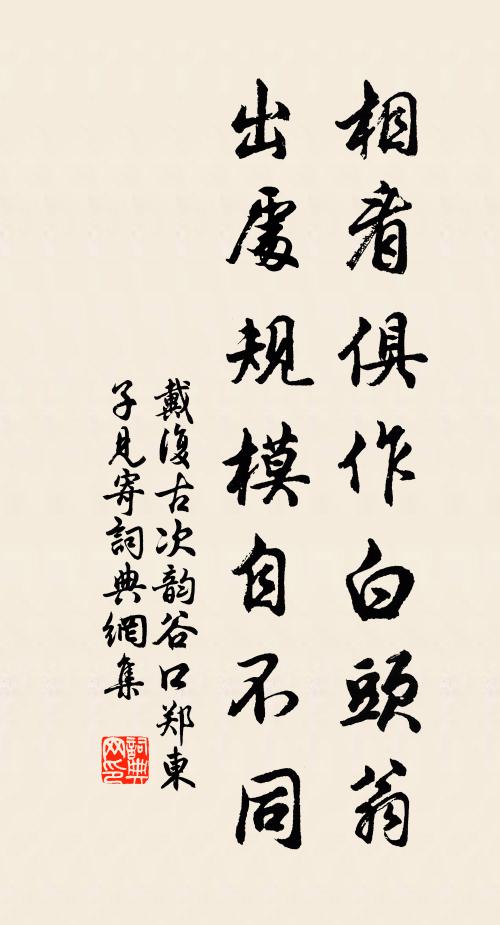 相看俱作白頭翁
出處規模自不同
戴復古次韵谷口郑東
子見寄詞典網集
詞典网印